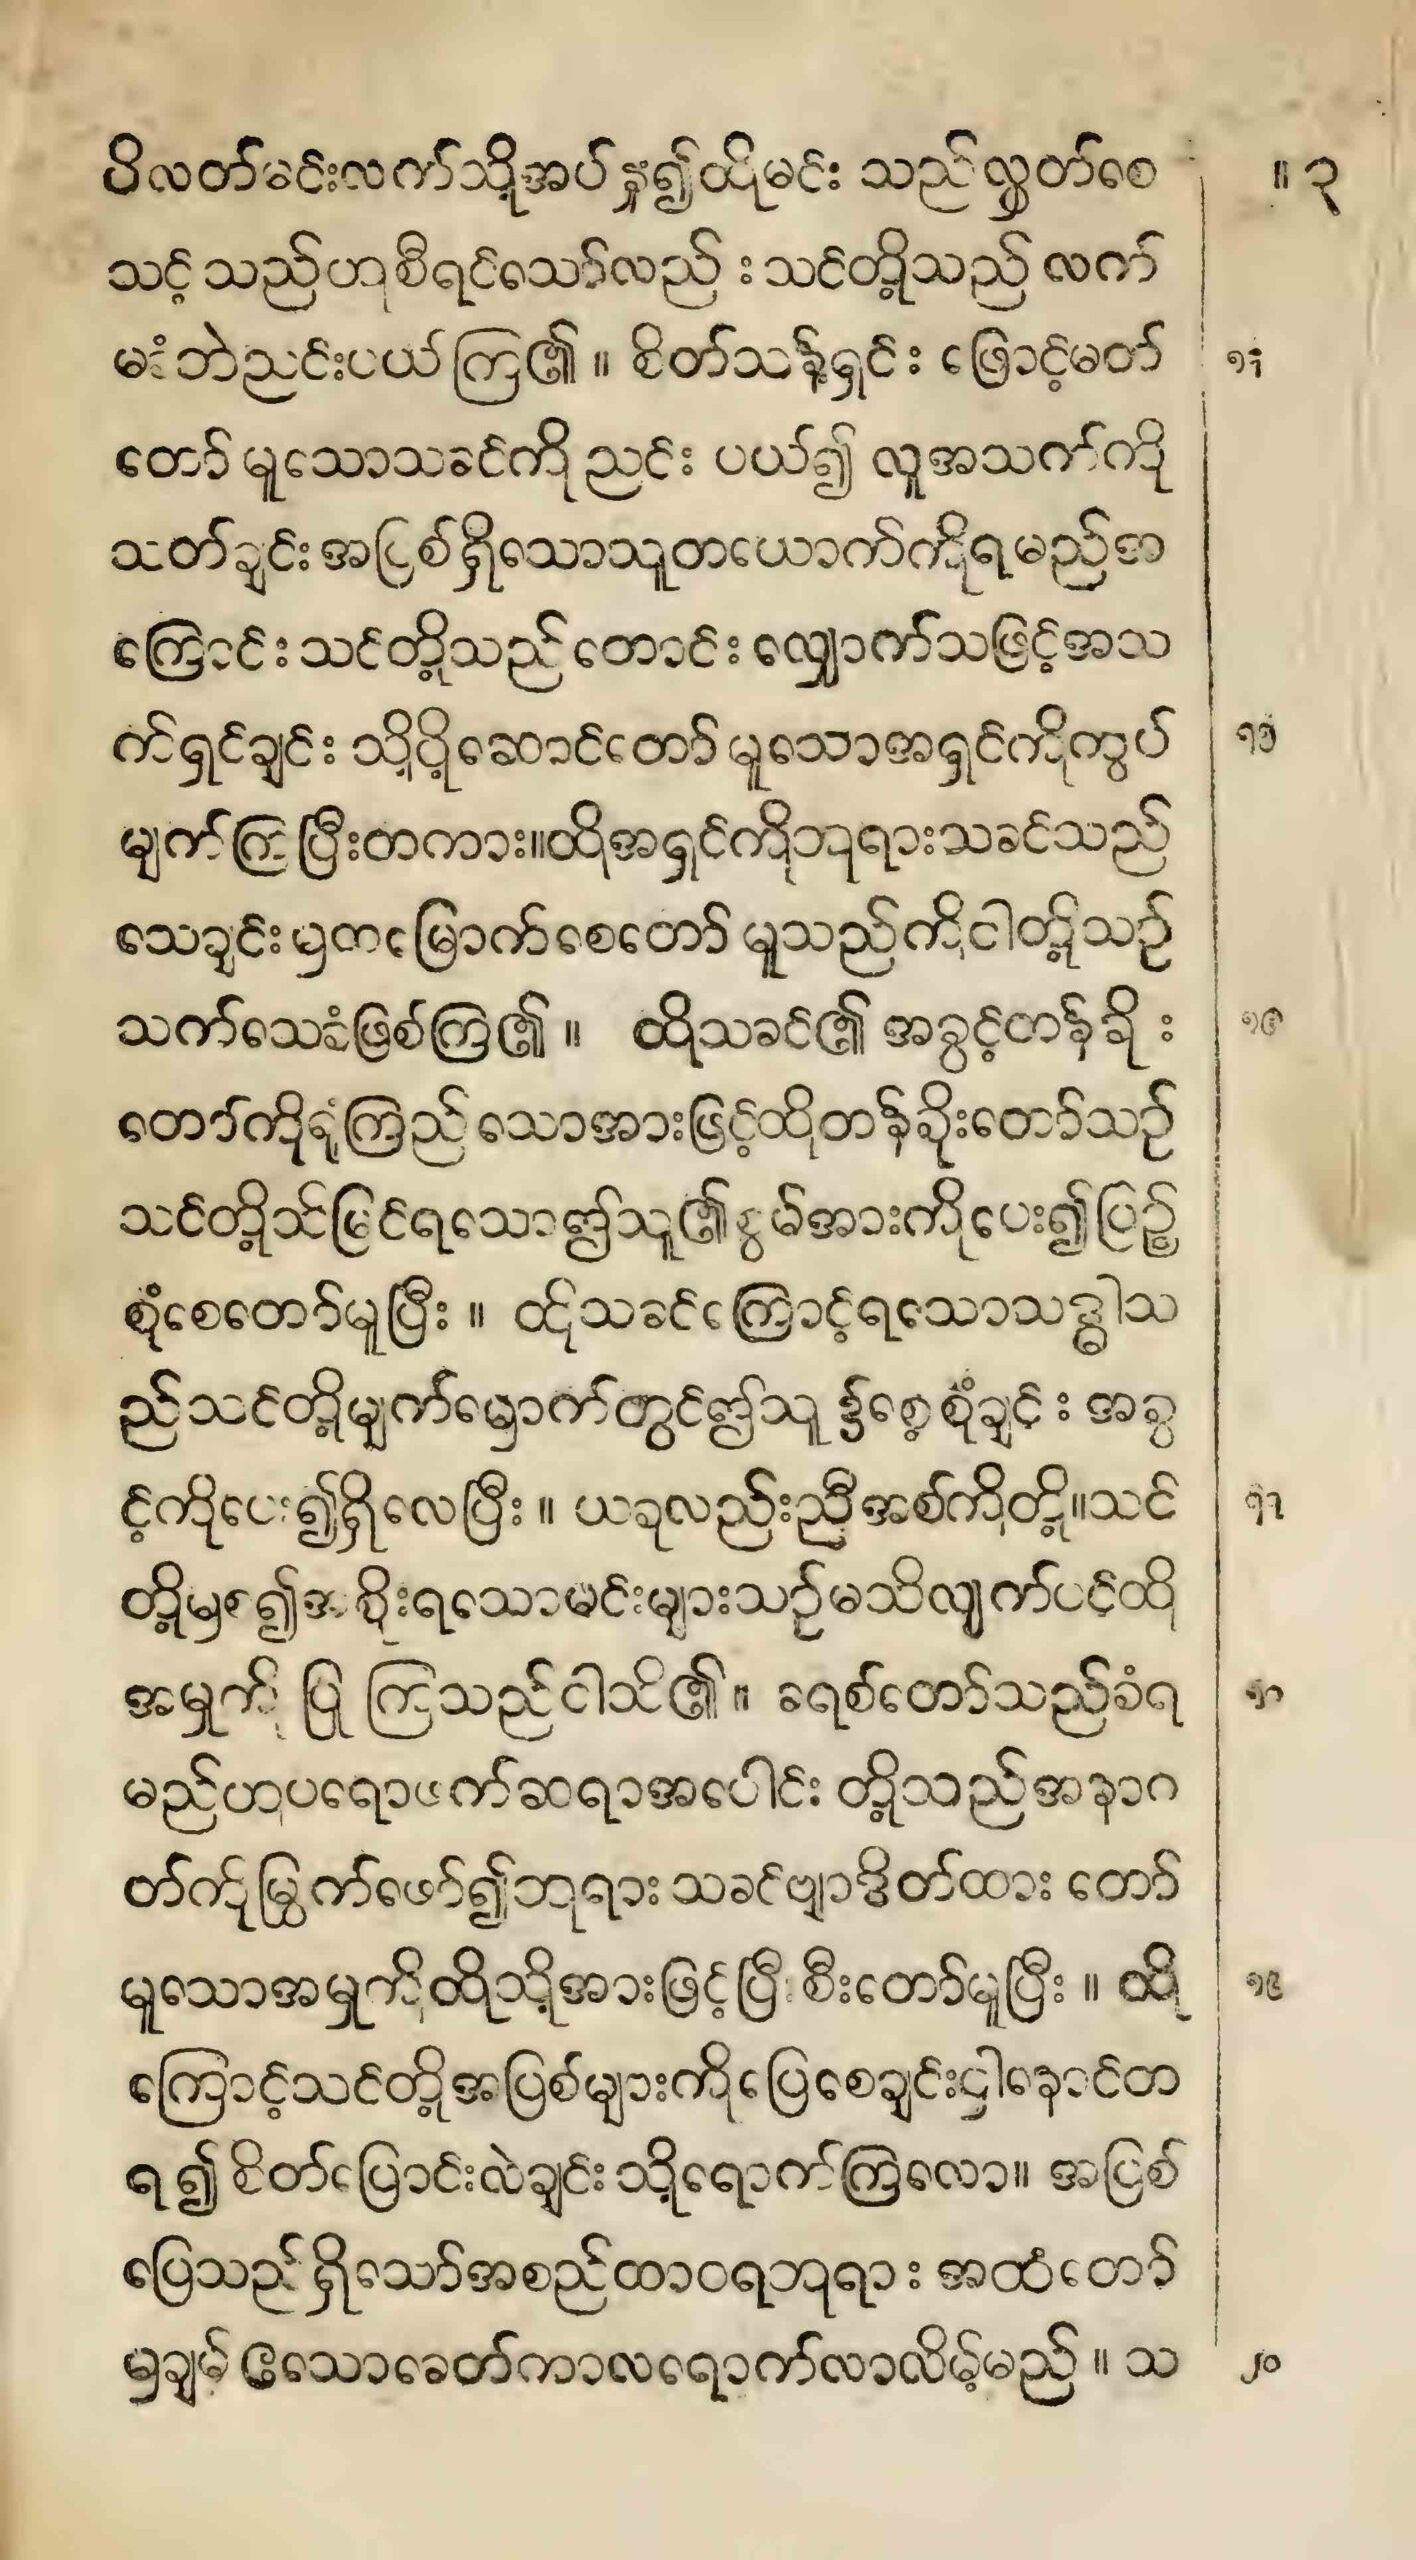 ပိလတ်မင်းလက်သို့အပ်နှံ၍ထိုမင်း သည်လွှတ်စေ ။ ၃
သင့်သည်ဟုစီရင်သော်လည်း သင်တို့သည် လက်
မခံဘဲညင်းပယ်ကြ၏ ။ စိတ်သန့်ရှင်း ဖြောင့်မတ် ၁၄
တော်မူသောသခင်ကိုညင်း ပယ်၍ လူအသက်ကို
သတ်ချင်းအပြစ်ရှိသောသူတယောက်ကိုရမည်အ
ကြောင်းသင်တို့သည်တောင်းလျှောက်သဖြင့်အသ
က်ရှင်ချင်း သို့ပို့ဆောင်တော်မူသောအရှင်ကိုကွပ် ၁၅
မျက်ကြပြီးတကား။ထိုအရှင်ကိုဘုရားသခင်သည်
သေချင်းမှထမြောက်စေတော်မူသည်ကိုငါတို့သဉ်
သက်သေခံဖြစ်ကြ၏ ။ ထိုသခင်၏ အခွင့်တန်ခိုး ၁၆
တော်ကိုရုံကြည်သောအားဖြင့်ထိုတန်ခိုးတော်သဉ်
သင်တို့သိမြင်ရသောဤသူ၏စွမ်အားကိုပေး၍ပြဉ့်
စုံစေတော်မူပြီး ။ ထိုသခင်ကြောင့်ရသောသဒ္ဓါသ
ည်သင်တို့မျက်မှောက်တွင်ဤသူ ၌စေ့စုံချင်း အခွ
င့်ကိုပေး၍ရှိလေပြီး ။ ယခုလည်းညီအစ်ကိုတို့။သင် ၁၇
တို့မှစ၍အစိုးရသောမင်းများသဉ်မသိလျက်ပင့်ထို
အမှုကို ပြု ကြသည်ငါသိ၏ ။ ခရစ်တော်သည်ခံရ ၁၈
မည်ဟုပရောဖက်ဆရာအပေါင်း တို့သည်အနာဂ
တ်ကိုမြွက်ဖော်၍ဘုရားသခင်ဗျာဒိတ်ထား တော်
မူသောအမှုကိုထိုသို့အားဖြင့်ပြီးစီးတော်မူပြီး ။ ထို ၁၉
ကြောင့်သင်တို့အပြစ်များကိုပြေစေချင်းငှါနောင်တ
ရ၍စိတ်ပြောင်းလဲချင်းသို့ရောက်ကြလော။ အပြစ်
ပြေသည်ရှိသော်အစည်ထာဝရဘုရား အထံတော်
မှချမ်းအေးသောခေတ်ကာလရောက်လာလိမ့်မည် ။ သ ၂၀